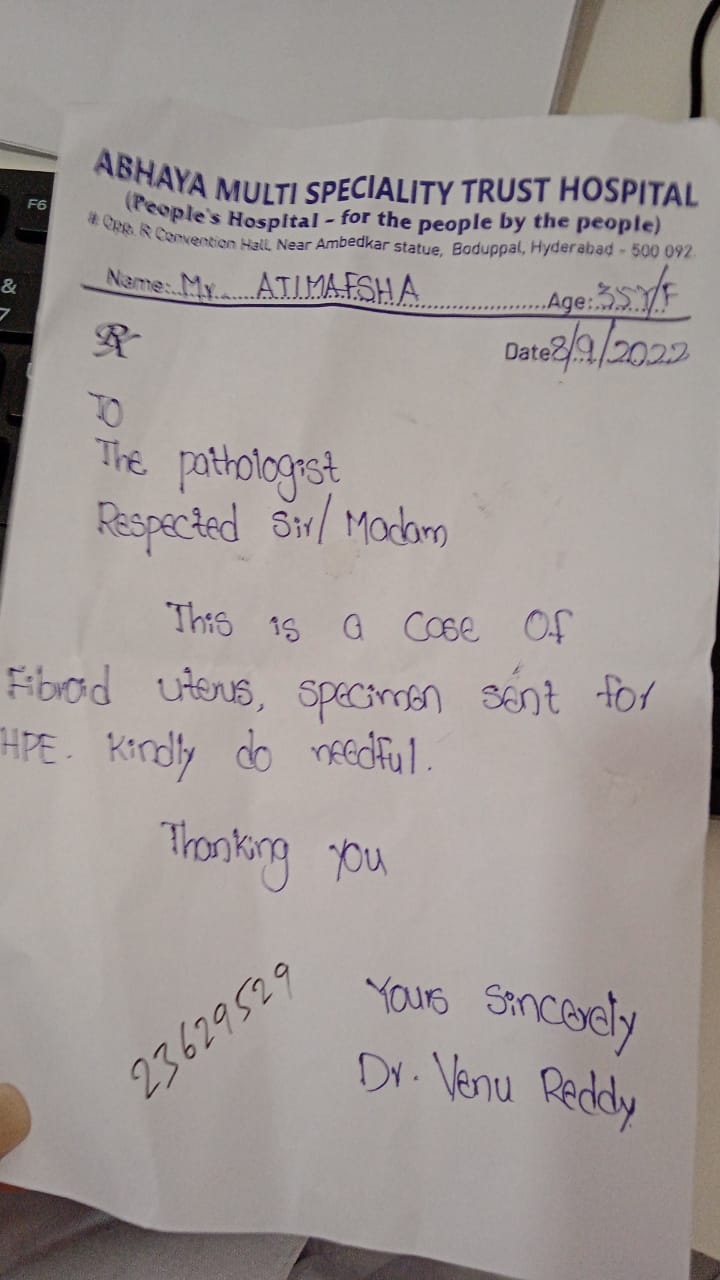 ABHAYA MULTI SPECIALITY TRUST HOSPITAL
(People's Hospital - for the people by the people)
# Opp. R Convention Hall, Near Ambedkar statue, Boduppal, Hyderabad - 500 092.
Name: Mr ATIMAFSHA Age: 35Y/F
Rx
Date 8/9/2022
TO
The pathologist
Respected Sir/ Madam
This is a case of
Fibroid uterus, specimen sent for
HPE. Kindly do needful.
Thanking you
23629529
Yours Sincerely
Dr. Venu Reddy
F6
&
7